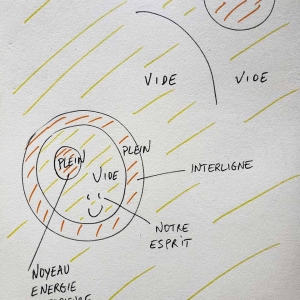 VIDE VIDE
PLEIN PLEIN
VIDE
INTERLIGNE
NOTRE
ESPRIT
NOYEAU
ENERGIE